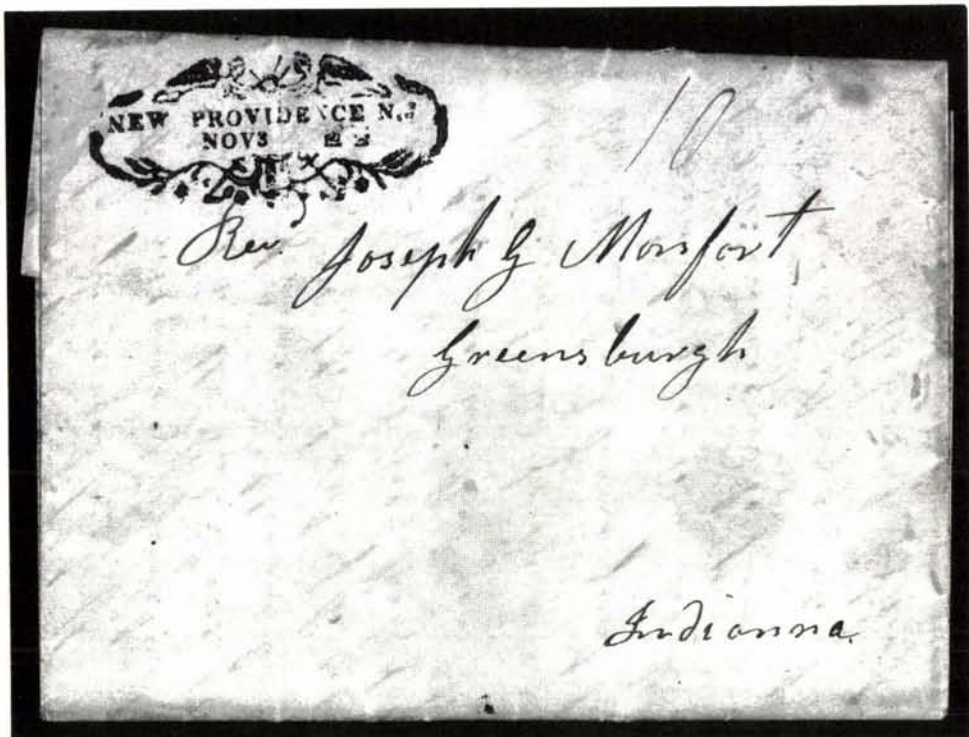 NEW PROVIDENCE N.J
NOV3
10
Rev. Joseph G Monfort
Greensburgh
Indianna.